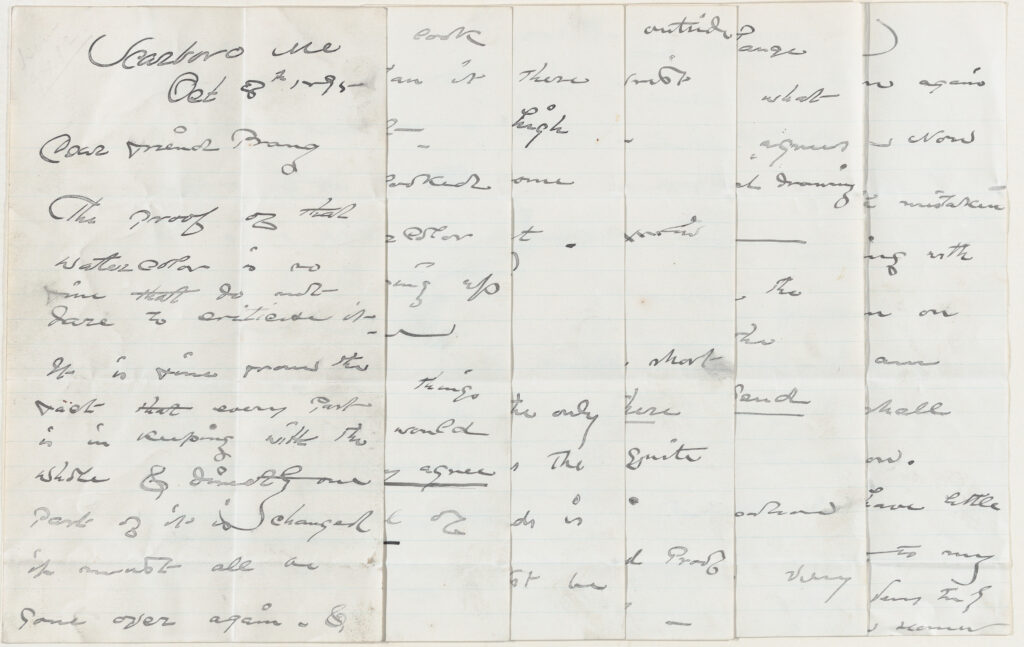 Scarboro Me
Oct 8th 1895
Dear friend Prang
The proof of that
water color is so
fine that do not
dare to criticise it -
It is fine from the
fact that every Part
is in keeping with the
whole & directly one
Part of it is changed
it must all be
gone over again. &
look
an it
asked
color
ing up
things
would
agree
of
there
high
some
t.
the only
s the
ds is
st be
outside
short
here
Quite
d Proof
ange
what
agrees
drawing
the
the
Send
very
n again
Now
mistaken
ing with
n on
am
shall
on.
have little
to my
Homer